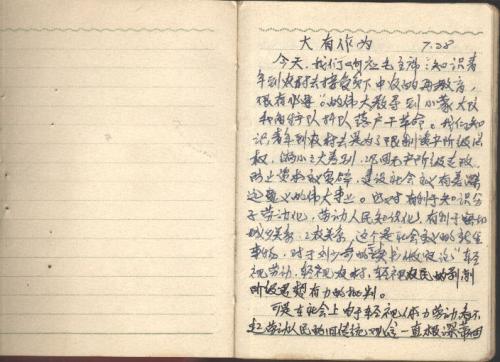 大有作为 7.28
今天,我们响应毛主席:"知识青
年到农村去接受贫下中农的再教育,
很有必要"的伟大教导到小蒙大队
和两行队 队落户干革命。我们知
识青年到农村去是为了限制资产阶级法
权,缩小三大差别,巩固无产阶级专政,
防止资本主义复辟,建设社会主义有着深
远意义的伟大事业。这对有利于知识分
子劳动化,劳动人民知识化,有利于密切
城乡关系,工农关系,这个是社会主义的新生
事物,对于刘少奇的"读书做官论""轻
视劳动,轻视农村,轻视农民的剥削
阶级思想有力的批判。
可是在社会上由于轻视体力劳动看不
起劳动人民的旧传统观念一直极深